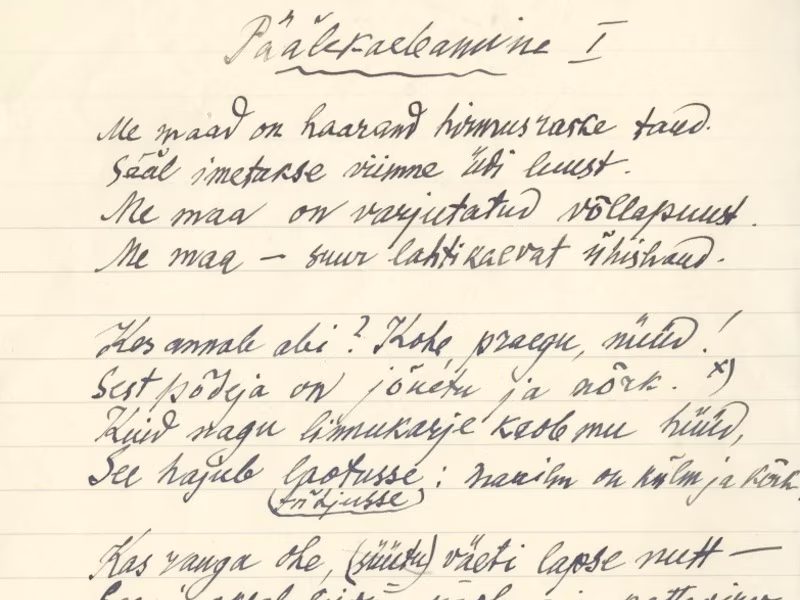 Pääleкaebamine I
Me maad on haarand hirmus raske taud.
Sääl imetakse viimne üdi luust.
Me maa on varjutatud võllapuust.
Me maa — suur lahtikaevat ühishaud.
Kes annab abi? Kohe, praegu, nüüd!
Sest põdeja on jõuetu ja nõrk. x)
Kuid nagu linnukarje kaob mu hüüd,
See hajub laotusse: maailm on külm ja kõrk.
(tühjusse)
Kas ranga ohe, (süütu) väeti lapse nutt —